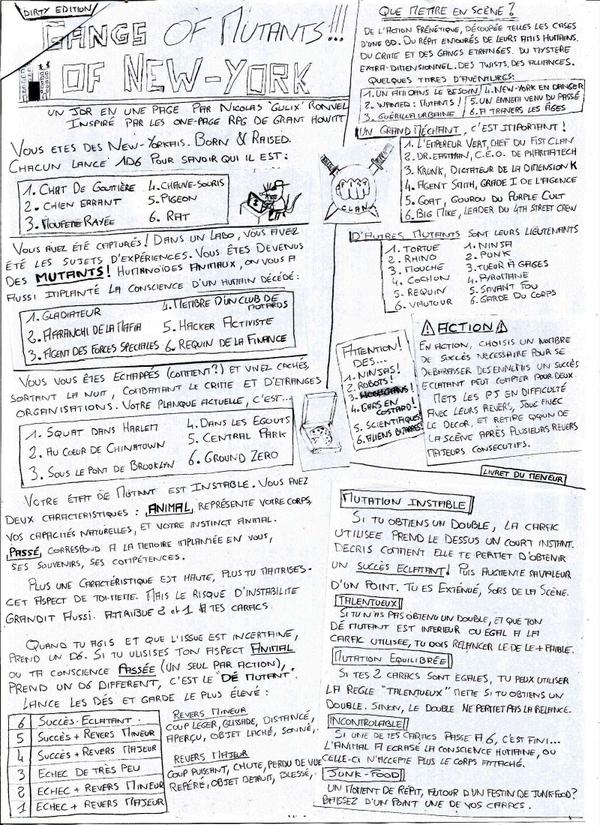 DIRTY EDITION
GANGS OF MUTANTS!!!
OF NEW-YORK
UN JDR EN UNE PAGE PAR NICOLAS "GULIX" RONVEL
INSPIRÉ PAR LES ONE-PAGE RPG DE GRANT HOWITT
VOUS ETES DES NEW-YORKAIS. BORN & RAISED.
CHACUN LANCE 1D6 POUR SAVOIR QUI IL EST:
1. CHAT DE GOUTTIÈRE
2. CHIEN ERRANT
3. MOUFETTE RAYÉE
4. CHAUVE-SOURIS
5. PIGEON
6. RAT
VOUS AVEZ ÉTÉ CAPTURÉS! DANS UN LABO, VOUS AVEZ
ÉTÉ LES SUJETS D'EXPÉRIENCES. VOUS ÊTES DEVENUS
DES MUTANTS! HUMANOÏDES ANIMAUX, ON VOUS A
AUSSI IMPLANTÉ LA CONSCIENCE D'UN HUMAIN DÉCÉDÉ:
1. GLADIATEUR
2. AFFRANCHI DE LA MAFIA
3. AGENT DES FORCES SPÉCIALES
4. MEMBRE D'UN CLUB DE MOTARDS
5. HACKER ACTIVISTE
6. REQUIN DE LA FINANCE
VOUS VOUS ÊTES ECHAPPÉS (COMMENT?) ET VIVEZ CACHÉS,
SORTANT LA NUIT, COMBATTANT LE CRIME ET D'ETRANGES
ORGANISATIONS. VOTRE PLANQUE ACTUELLE, C'EST...
1. SQUAT DANS HARLEM
2. AU COEUR DE CHINATOWN
3. SOUS LE PONT DE BROOKLYN
4. DANS LES EGOUTS
5. CENTRAL PARK
6. GROUND ZERO
VOTRE ÉTAT DE MUTANT EST INSTABLE. VOUS AVEZ
DEUX CARACTERISTIQUES: ANIMAL, REPRÉSENTE VOTRE CORPS,
VOS CAPACITÉS NATURELLES, ET VOTRE INSTINCT ANIMAL.
PASSÉ, CORRESPOND A LA MEMOIRE IMPLANTÉE EN VOUS,
SES SOUVENIRS, SES COMPÉTENCES.
PLUS UNE CARACTÉRISTIQUE EST HAUTE, PLUS TU MAITRISES
CET ASPECT DE TOI-MEME. MAIS LE RISQUE D'INSTABILITE
GRANDIT AUSSI. ATTRIBUE 2 ET 1 A TES CARACS.
QUAND TU AGIS ET QUE L'ISSUE EST INCERTAINE,
PREND UN D6. SI TU ULISISES TON ASPECT ANIMAL
OU TA CONSCIENCE PASSÉE (UN SEUL PAR ACTION),
PREND UN D6 DIFFÉRENT, C'EST LE "DÉ MUTANT".
LANCE LES DÉS ET GARDE LE PLUS ÉLEVÉ:
6 SUCCÈS ECLATANT
5 SUCCÈS + REVERS MINEUR
4 SUCCÈS + REVERS MAJEUR
3 ECHEC DE TRÈS PEU
2 ECHEC + REVERS MINEUR
1 ECHEC + REVERS MAJEUR
REVERS MINEUR
COUP LÉGER, GLISSADE, DISTANCÉ,
APERÇU, OBJET LACHÉ, SONNÉ,..
REVERS MAJEUR
COUP PUISSANT, CHUTE, PERDU DE VUE
REPÉRÉ, OBJET DETRUIT, BLESSÉ,.
QUE METTRE EN SCÈNE?
DE L'ACTION FRÉNÉTIQUE, DÉCOUPÉE TELLES LES CASES
D'UNE BD. DU RÉPIT ENTOURÉS DE LEURS AMIS HUMAINS.
DU CRIME ET DES GANGS ETRANGES. DU MYSTÈRE
EXTRA-DIMENSIONNEL. DES TWISTS, DES ALLIANCES.
QUELQUES TITRES D'AVENTURES:
1. UN AMI DANS LE BESOIN
2. WANTED: MUTANTS!
3. GUÉRILLA URBAINE
4. NEW-YORK EN DANGER
5. UN ENNEMI VENU DU PASSÉ
6. A TRAVERS LES ÂGES
UN GRAND MÉCHANT, C'EST IMPORTANT!
1. L'EMPEREUR VERT, CHEF DU FIST CLAN
2. DR. EASTMAN, C.E.O. DE PHARMATECH
3. KRUNK, DICTATEUR DE LA DIMENSION K
4. AGENT SMITH, GRADE I DE L'AGENCE
5. GOAT, GOUROU DU PURPLE CULT
6. BIG MIKE, LEADER DU 4TH STREET CREW
CLAN
D'AUTRES MUTANTS SONT LEURS LIEUTENANTS
1. TORTUE
2. RHINO
3. MOUCHE
4. COCHON
5. REQUIN
6. VAUTOUR
1. NINJA
2. PUNK
3. TUEUR À GAGES
4. PYROMANE
5. SAVANT FOU
6. GARDE DU CORPS
ATTENTION!
DES...
1. NINJAS!
2. ROBOTS!
4. GARS EN
COSTARD!
5. SCIENTIFIQUES!
6. ALIENS BIZARRES!
ACTION
EN ACTION, CHOISIS UN NOMBRE
DE SUCCÈS NECESSAIRE POUR SE
DEBARRASSER DES ENNEMIS. UN SUCCÈS
ECLATANT PEUT COMPTER POUR DEUX.
METS LES PJ EN DIFFICULTÉ
AVEC LEURS REVERS, JOUE AVEC
LE DECOR, ET RETIRE QQUN DE
LA SCÈNE APRÈS PLUSIEURS REVERS
MAJEURS CONSECUTIFS.
LIVRET DU MENEUR
MUTATION INSTABLE
SI TU OBTIENS UN DOUBLE, LA CARAC
UTILISEE PREND LE DESSUS UN COURT INSTANT.
DECRIS COMMENT ELLE TE PERMET D'OBTENIR
UN SUCCÈS ECLATANT! PUIS AUGMENTE SA VALEUR
D'UN POINT. TU ES EXTÉNUÉ, SORS DE LA SCÈNE.
TALENTUEUX
SI TU N'AS PAS OBTENU UN DOUBLE, ET QUE TON
DÉ MUTANT EST INFERIEUR OU EGAL A LA
CARAC UTILISÉE, TU DOIS RELANCER LE DE LE + FAIBLE.
MUTATION EQUILIBRÉE
SI TES 2 CARACS SONT EGALES, TU PEUX UTILISER
LA REGLE "TALENTUEUX" MEME SI TU OBTIENS UN
DOUBLE. SINON, LE DOUBLE NE PERMET PAS LA RELANCE.
INCONTROLABLE
SI UNE DE TES CARACS PASSE A 6, C'EST FINI...
L'ANIMAL A ECRASÉ LA CONSCIENCE HUMAINE, OU
CELLE-CI N'ACCEPTE PLUS LE CORPS ATTACHÉ.
JUNK-FOOD
UN MOMENT DE RÉPIT, AUTOUR D'UN FESTIN DE JUNK-FOOD?
BAISSEZ D'UN POINT UNE DE VOS CARACS.